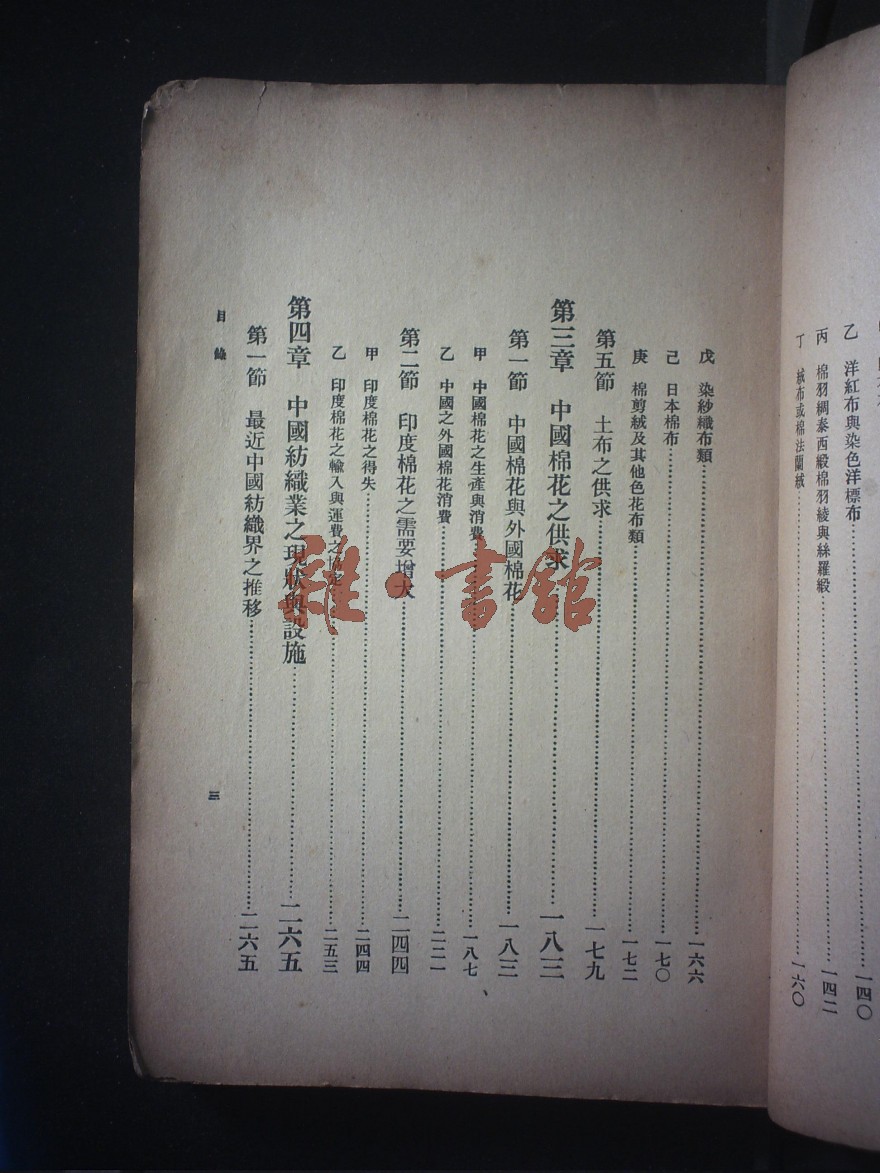 乙 洋紅布與染色洋標布 一四〇
丙 棉羽綢泰西緞棉羽綾與絲羅緞 一四二
丁 絨布或棉法蘭絨 一六〇
戊 染紗織布類 一六六
己 日本棉布 一七〇
庚 棉剪絨及其他色花布類 一七二
第五節 土布之供求 一七九
第三章 中國棉花之供求 一八三
第一節 中國棉花與外國棉花 一八三
甲 中國棉花之生產與消費 一八七
乙 中國之外國棉花消費 二二一
第二節 印度棉花之需要增大 二四四
甲 印度棉花之得失 二四四
乙 印度棉花之輸入與運費之 二五三
第四章 中國紡織業之現狀與設施 二六五
第一節 最近中國紡織界之推移 二六五
目錄
三
雜·書館